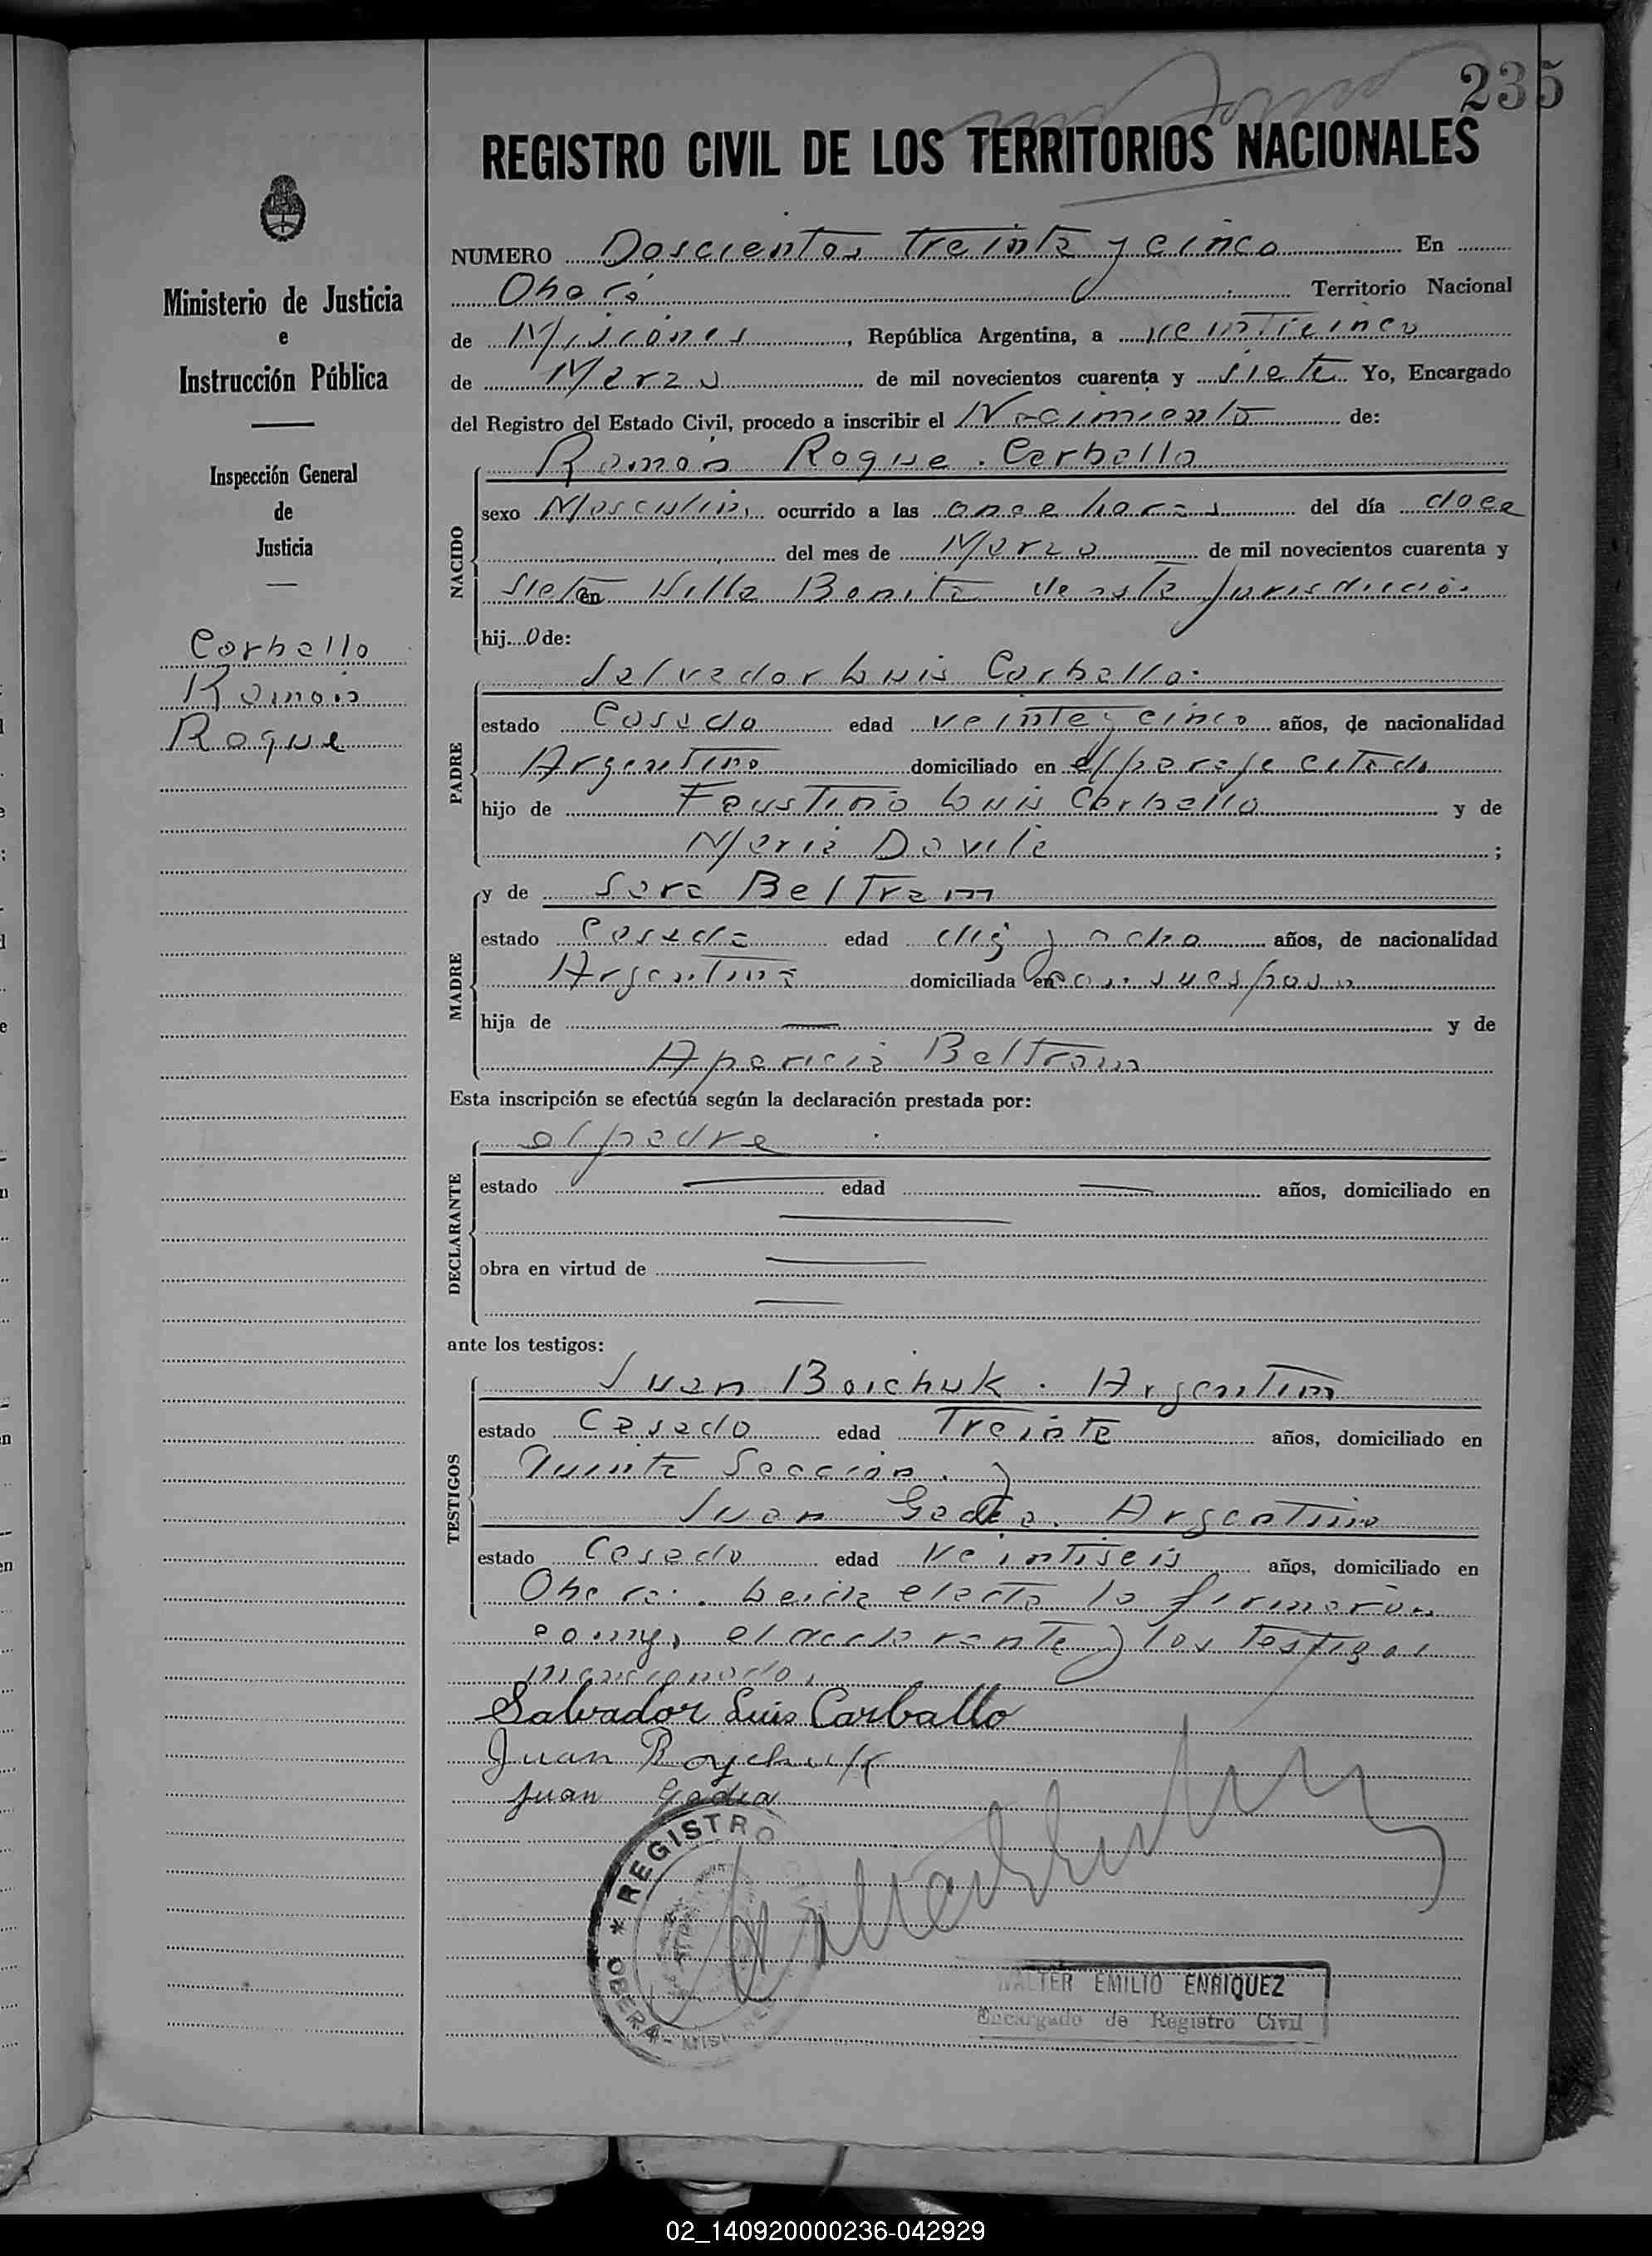 235
REGISTRO CIVIL DE LOS TERRITORIOS NACIONALES
NUMERO Doscientos treinta y cinco En
Oberá Territorio Nacional
de Misiones, República Argentina, a veinticinco
de Marzo de mil novecientos cuarenta y siete Yo, Encargado
del Registro del Estado Civil, procedo a inscribir el Nacimiento de:
Ramón Roque Carballo
NACIDO
sexo Masculino ocurrido a las once horas del día doce
del mes de Marzo de mil novecientos cuarenta y
siete en Villa Bonita de esta Jurisdicción
hijo de:
Salvador Luis Carballo
PADRE
estado Casado edad veinte y cinco años, de nacionalidad
Argentino domiciliado en el paraje citado
hijo de Faustino Luis Carballo y de
Maria Davila;
y de Sara Beltram
MADRE
estado Casada edad diez y ocho años, de nacionalidad
Argentina domiciliada en con su esposo
hija de — y de
Aparicia Beltram
Esta inscripción se efectúa según la declaración prestada por:
el padre
DECLARANTE
estado — edad — años, domiciliado en
—
obra en virtud de —
—
ante los testigos:
Juan Boichuk. Argentino
TESTIGOS
estado Casado edad Treinta años, domiciliado en
Quinta Sección. y
Juan Gadea. Argentino
estado Casado edad Veintiseis años, domiciliado en
Oberá. Leida el acta la firmaron
conmigo el declarante y los testigos
mencionados
Salvador Luis Carballo
Juan Boychuk
Juan Gadea
* REGISTRO
OBERA - MISI
WALTER EMILIO ENRIQUEZ
Encargado de Registro Civil
Ministerio de Justicia
e
Instrucción Pública
Inspección General
de
Justicia
Carballo
Ramón
Roque
02_140920000236-042929